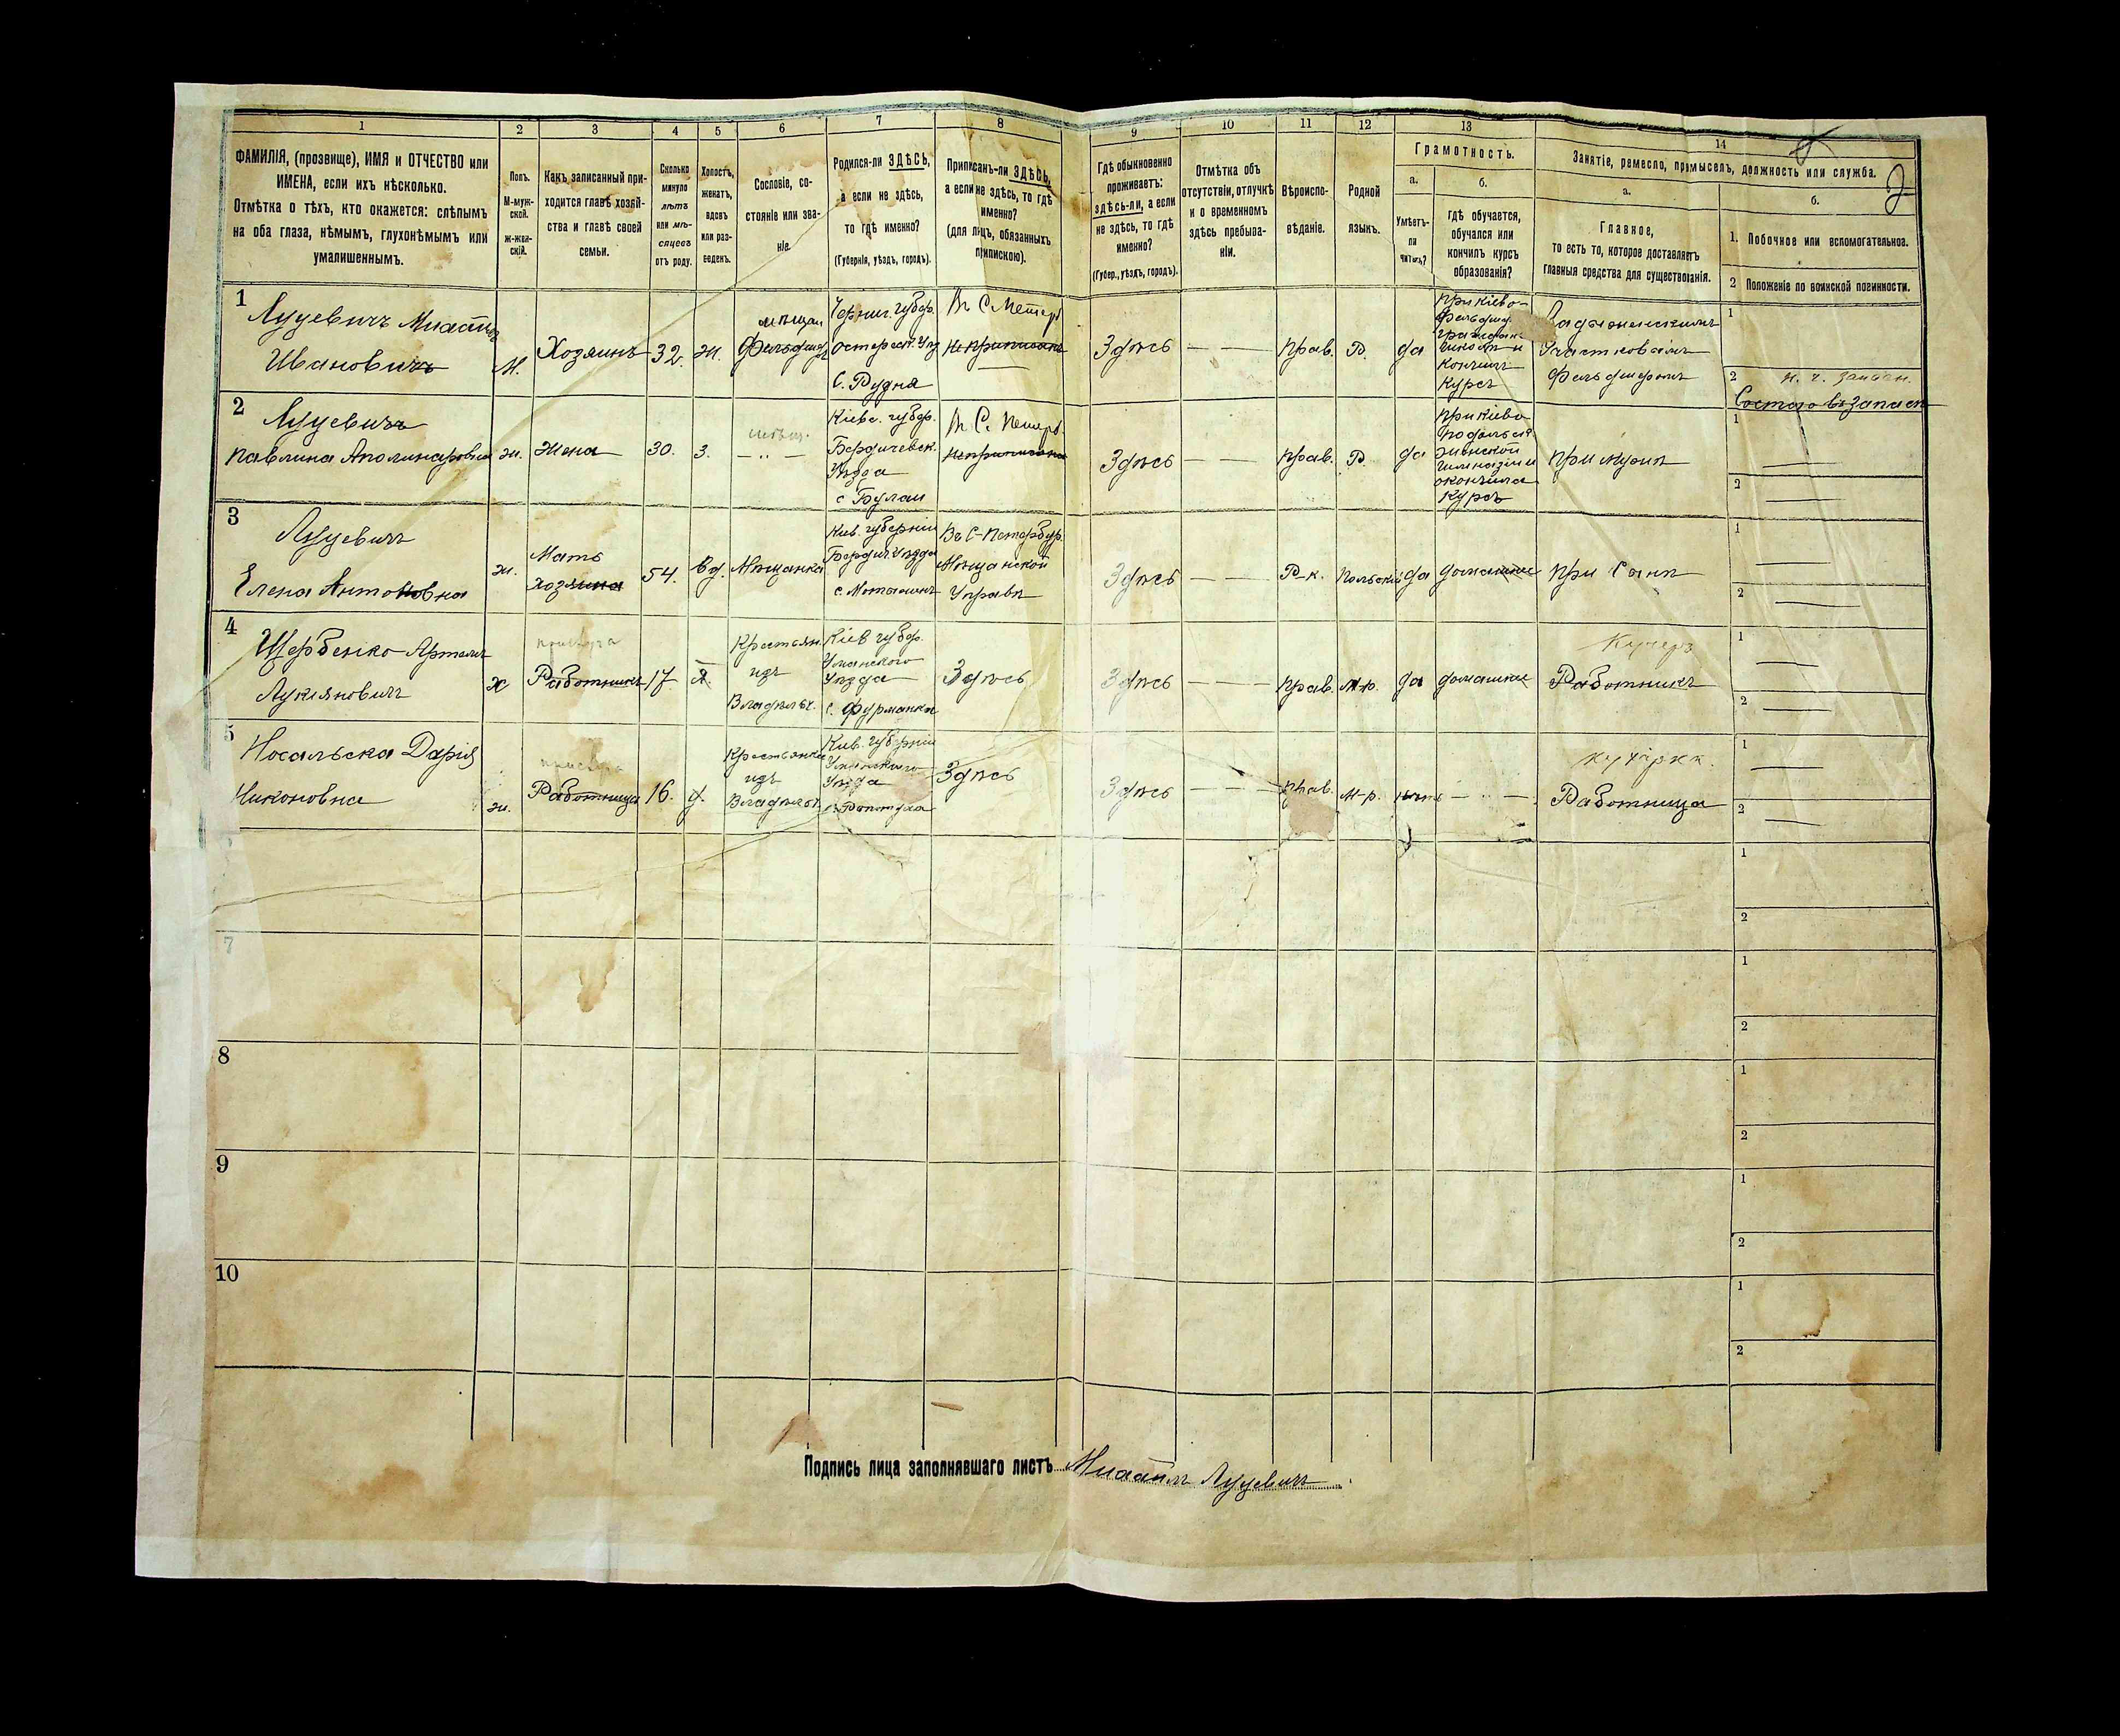 1 2 3 4 5 6 7 8 9 10 11 12 13 14
ФАМИЛІЯ, (прозвище), ИМЯ и ОТЧЕСТВО или
ИМЕНА, если ихъ нѣсколько.
Отмѣтка о тѣхъ, кто окажется: слѣпымъ
на оба глаза, нѣмымъ, глухонѣмымъ или
умалишеннымъ.
Полъ.
М-муж-
ской.
ж-жен-
скій.
Какъ записанный при-
ходится главѣ хозяй-
ства и главѣ своей
семьи.
Сколько
минуло
лѣтъ
или мѣ-
сяцевъ
отъ роду.
Холостъ,
женатъ,
вдовъ
или раз-
веденъ.
Сословіе, со-
стояніе или зва-
ніе.
Родился-ли ЗДѢСЬ,
а если не здѣсь,
то гдѣ именно?
(Губернія, уѣздъ, городъ).
Приписанъ-ли ЗДѢСЬ,
а если не здѣсь, то гдѣ
именно?
(для лицъ, обязанныхъ
припискою).
Гдѣ обыкновенно
проживаетъ:
здѣсь-ли, а если
не здѣсь, то гдѣ
именно?
(Губер., уѣздъ, городъ).
Отмѣтка объ
отсутствіи, отлучкѣ
и о временномъ
здѣсь пребыва-
ніи.
Вѣроиспо-
вѣданіе.
Родной
языкъ.
Грамотность.
а.
Умѣетъ-
ли
читать?
б.
гдѣ обучается,
обучался или
кончилъ курсъ
образованія?
Занятіе, ремесло, промыселъ, должность или служба.
а.
Главное,
то есть то, которое доставляетъ
главныя средства для существованія.
б.
1. Побочное или вспомогательное.
2 Положеніе по воинской повинности.
1
Луцевичъ Михаилъ
Ивановичъ
М.
Хозяинъ
32.
Ж.
мѣщан
Фельдшер
Черниг. губер.
Остерск. Уѣз
С. Рудня
Въ С. Петерб
Неприписанъ
Здѣсь
— —
Прав.
Р.
да
При Кіево-
Кончилъ
Курсъ
Участковымъ
Фельдшеромъ
1
2
Состою въ запасѣ
2
Луцевичъ
Павлина Аполинаровна
ж.
Жена
30.
З.
— „ —
Кіевс. губер.
Бердичевск.
Уѣзда
Въ С. Петерб.
Неприписана
Здѣсь
— —
Прав.
Р.
да
При Кіево
Подольск.
Женской
Гимназіи
окончила
Курсъ
При мужѣ
1
2
3
Луцевичъ
Елена Антоновна
ж.
Мать
Хозяина
54.
Вд.
Мѣщанка
Кіев. губерніи
Бердич Уѣзда
Въ С-Петербур.
Мѣщанской
Управѣ
Здѣсь
— —
Р-к.
Польскій
да
домашнее
При Сынѣ
1
2
4
Щербенко Артемъ
Лукіяновичъ
прислуга
Работникъ
17.
Х.
Крестьян.
изъ
Владѣльч.
Кіев губер.
Уманскаго
Уѣзда
с. Фурманка
Здѣсь
Здѣсь
— —
Прав.
М-р.
да
домашнее
Кучеръ
Работникъ
1
2
5
Носальска Дарія
Никоновна
ж.
прислуга
Работница
16.
д.
Крестьянка
изъ
Владѣльч.
Кіев. губерніи
Уманскаго
Уѣзда
Здѣсь
Здѣсь
— —
Прав.
М-р.
нѣтъ
— „ —
Работница
1
2
1
2
7
1
2
8
1
2
9
1
2
10
1
2
Подпись лица заполнявшаго листъ Михаилъ Луцевичъ